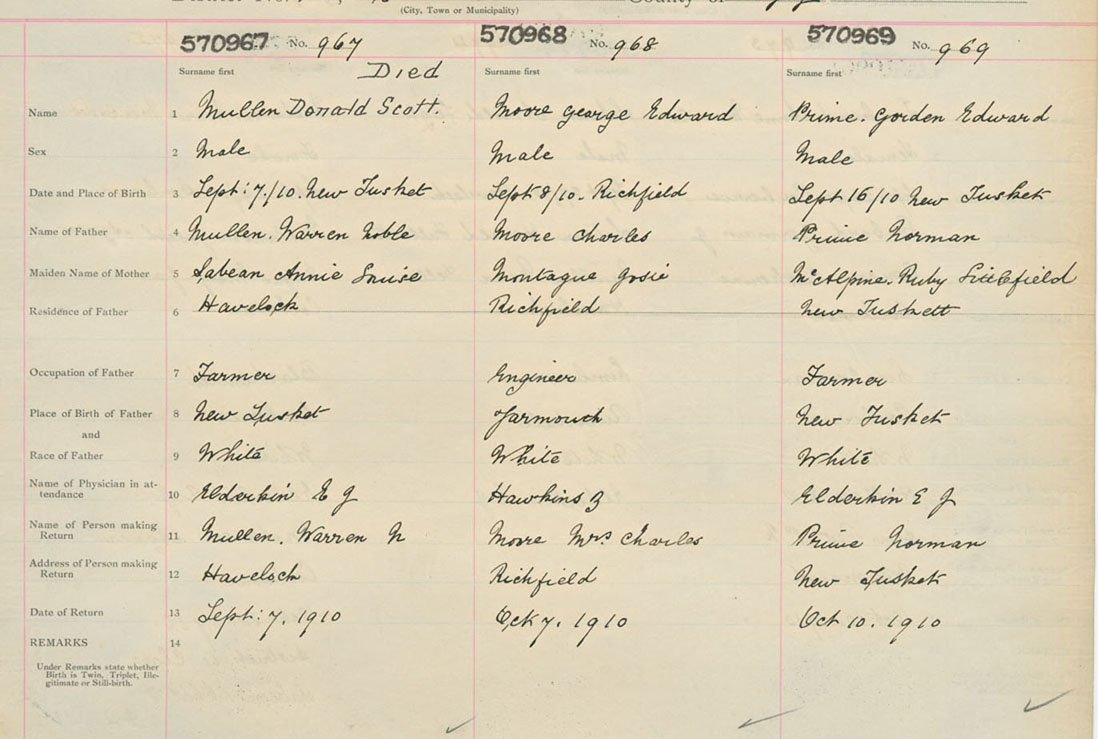 (City, Town or Municipality)
570967 No. 967 570968 No. 968 570969 No. 969
Surname first Died Surname first Surname first
Name 1 Mullen Donald Scott. Moore George Edward Prime. Gorden Edward
Sex 2 Male Male Male
Date and Place of Birth 3 Sept: 7./10. New Tusket Sept 8/10. Richfield Sept 16/10 New Tusket
Name of Father 4 Mullen. Warren Noble Moore Charles Prime Norman
Maiden Name of Mother 5 Sabean Annie Louise Montague Josie McAlpine. Ruby Littlefield
Residence of Father 6 Havelock Richfield New Tuskett
Occupation of Father 7 Farmer Engineer Farmer
Place of Birth of Father 8 New Tusket Yarmouth New Tusket
and
Race of Father 9 White White White
Name of Physician in at-
tendance 10 Elderkin E J Hawkins Z Elderkin E J
Name of Person making
Return 11 Mullen. Warren N Moore Mrs Charles Prime Norman
Address of Person making
Return 12 Havelock Richfield New Tusket
Date of Return 13 Sept: 7, 1910 Oct 7, 1910 Oct 10. 1910
REMARKS 14
Under Remarks state whether
Birth is Twin, Triplet, Ille-
gitimate or Still-birth.